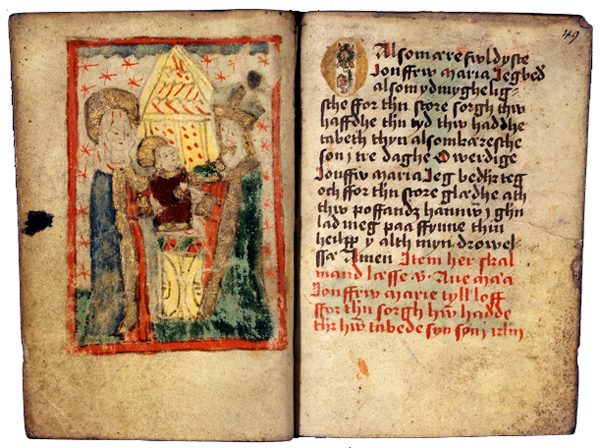 49
O Alsomærefwldyste
Jonffrw maria Jeg bedh
alsomydmyghelig-
sthe ffor thn store sorgh thw
haffdhe thn tyd thw haddhe
tabeth thyn alsombæresthe
son j tre daghe O werdige
Jonffrw maria Jeg bedhr teg
och ffor thn store glædhe ath
thw poffandz hannw j ghn
lad meg paa ffynne thn
y alth myn drowel-
ssæ Amen Item her skal
mand læsse v. Aue ma'a
Jonffrw marie tyll loff
ffor thn sorgh hw̄ hadde
thr hw̄ tabede syn søn j irlm